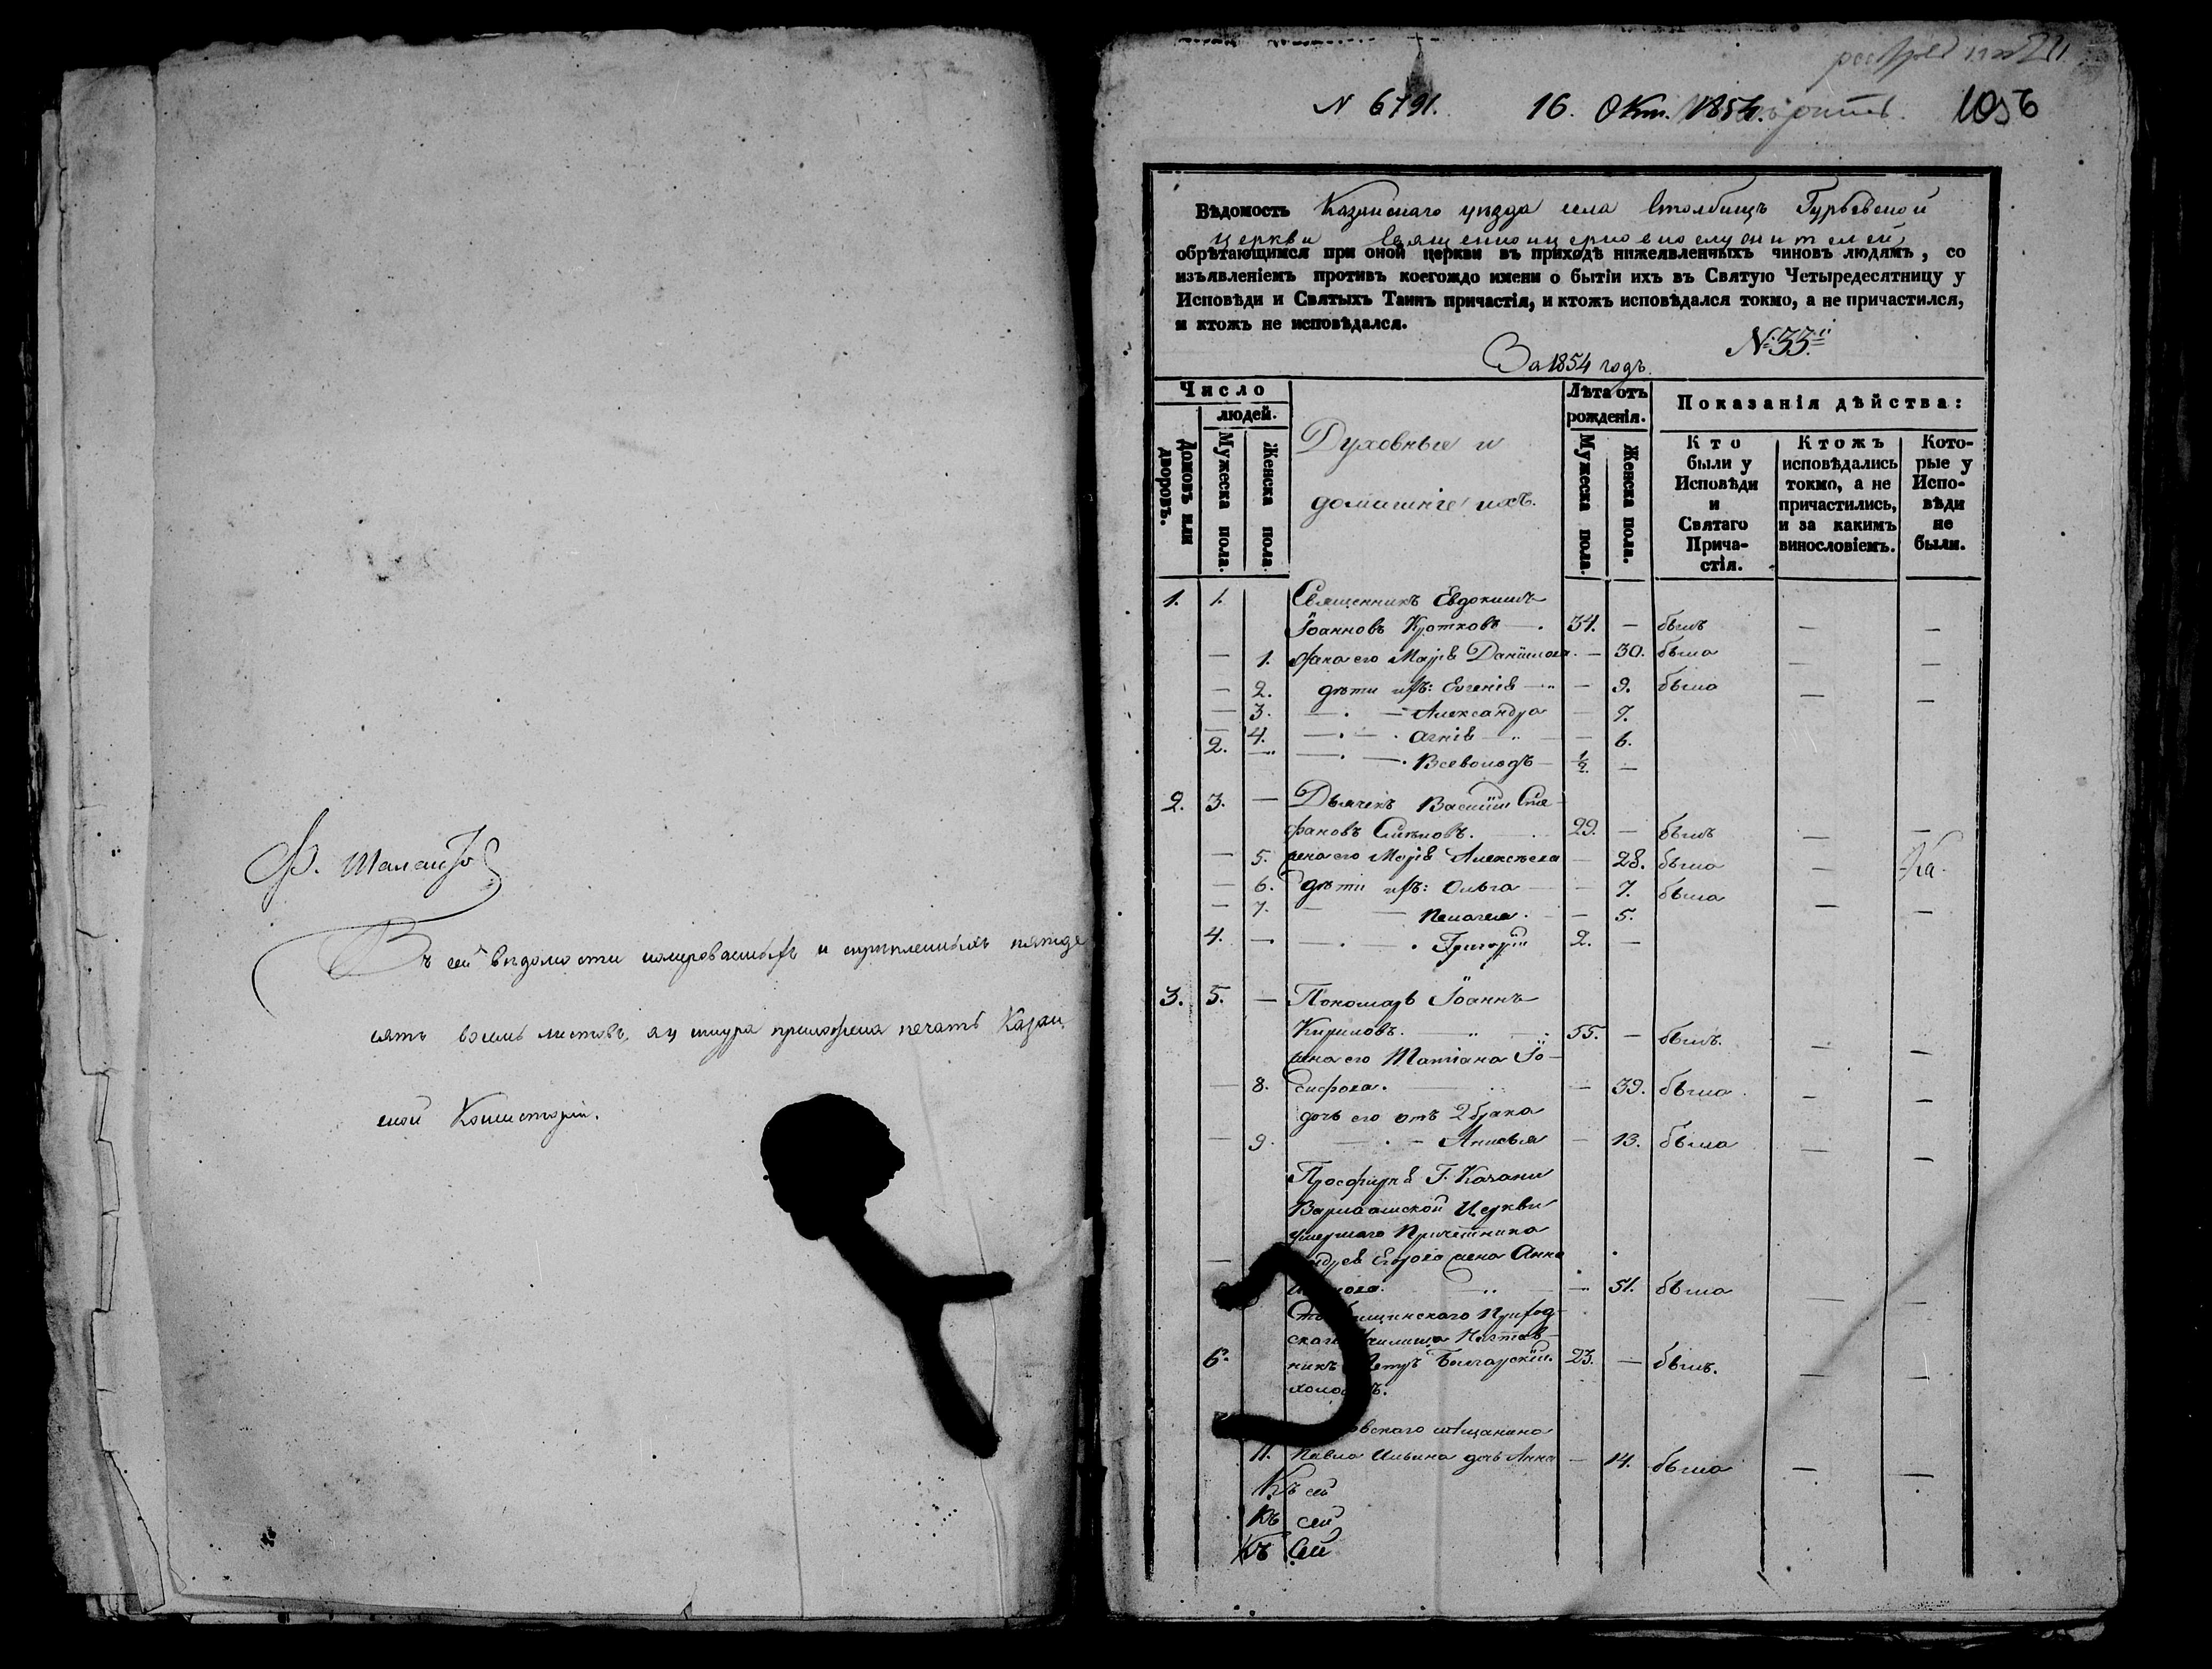 Ф.
Въ сей вѣдомости нумерованныхъ и скрѣпленныхъ пятьде
сять восемь листовъ, а у шнура приложена печать Казан
ской Консисторіи.
N 6791. 16. Окт. 1854. 1056
Вѣдомость Казанскаго уѣзда села Столбищъ Гурьевской
церкви Священноцерковнослужителей
обрѣтающимся при оной церкви въ приходѣ нижеявленныхъ чиновъ людямъ, со
изъявленіемъ противъ коегождо имени о бытіи ихъ въ Святую Четыредесятницу у
Исповѣди и Святыхъ Таинъ причастія, и ктожъ исповѣдался токмо, а не причастился,
и ктожъ не исповѣдался.
№ 33й
За 1854 годъ.
Число
людей.
Домовъ или дворовъ.
Мужеска пола.
Женска пола.
Духовные и
домашніе ихъ.
Лѣта отъ
рожденія.
Мужеска пола.
Женска пола.
Показанія дѣйства:
Кто были у Исповѣди и Святаго Прича-стія.
Ктожъ исповѣдались токмо, а не причастились, и за какимъ винословіемъ.
Кото-рые у Испо-вѣди не были.
1. 1. Священникъ Евдокимъ
Іоанновъ Кротковъ — . 34. — былъ — —
— 1. жена его Марія Даніилова. — 30. была — —
— 2. дѣти ихъ: Евгенія — — 9. была — —
— 3. — . — Александра — 7.
— 4. — . — . Агнія — — 6.
2. — — . — . Всеволодъ — ½. —
2. 3. — Дьячекъ Василій Сте-
фановъ 29. — былъ — —
— 5. жена его Марія Алексѣева — 28. была —
— 6. дѣти ихъ: Ольга — — 7. была — —
— 7. — — Пелагея. — 5.
4. — — . — . Григорій 2. —
3. 5. — Пономарь Іоаннъ
Кириловъ. — 55. — былъ. — —
жена его Татіана Іо-
— 8. сифова. — — 39. была — —
дочь его отъ 2 брака
— 9. — . — Анисья — 13. была — —
Просфирня Г. Казани
Варлаамской Церкви
умершаго Причетника
Егорова жена Анна
— — 51. была — —
Приход-
скаго Училища Настав-
6. никъ Петръ Болгарскій. 23. — былъ. — —
мѣщанина
11. Павла Ильина дочь Анна — 14. была — —
Къ сей
Къ сей
Къ сей